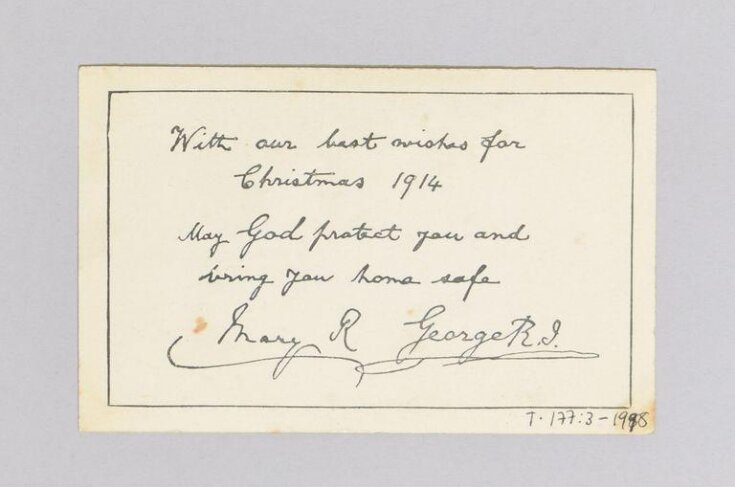 With our best wishes for
Christmas 1914
May God protect you and
bring you home safe
Mary R George R.I.
T.177:3-1998